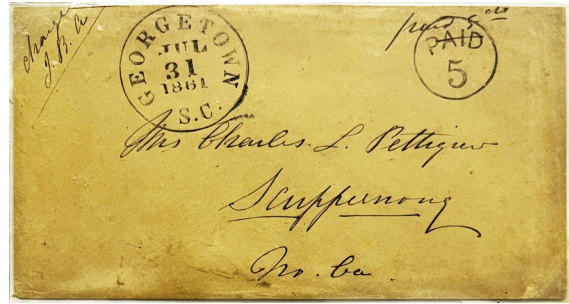 charge
J. B. A
GEORGETOWN
JUL
31
1861
S.C.
paid 5 cts
PAID
5
Mrs Charles L. Pettigrew
Scuppernong
No. Ca.